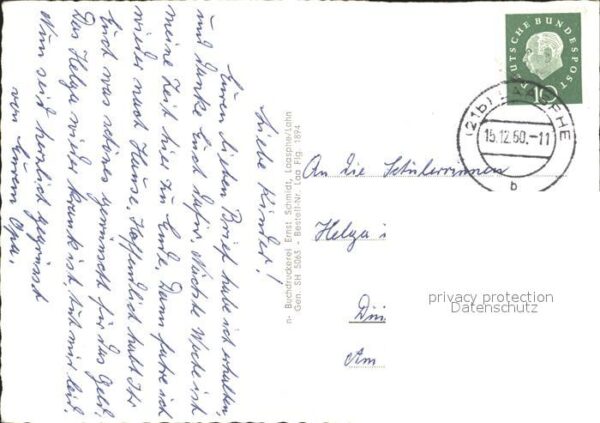 Liebe Kinder!
Euren lieben Brief habe ich erhalten,
und danke Euch dafür. Nächste Woche ist
meine Zeit hier zu Ende. Dann fahre ich
wieder nach Hause. Hoffentlich habt Ihr
Euch was schönes gewünscht für das Geld.
Das Helga wieder krank ist, tut mir leid.
Nun seid herzlich gegrüsst
von Eurem Opa.
n- Buchdruckerei Ernst Schmidt, Laasphe/Lahn
Gen. SH 5065 - Bestell-Nr. Laa Flg. 1894
DEUTSCHE BUNDESPOST
10
(21b) LAASPHE
15.12.60.-11
b
An die Schülerinnen
Helga
Am
privacy protection
Datenschutz